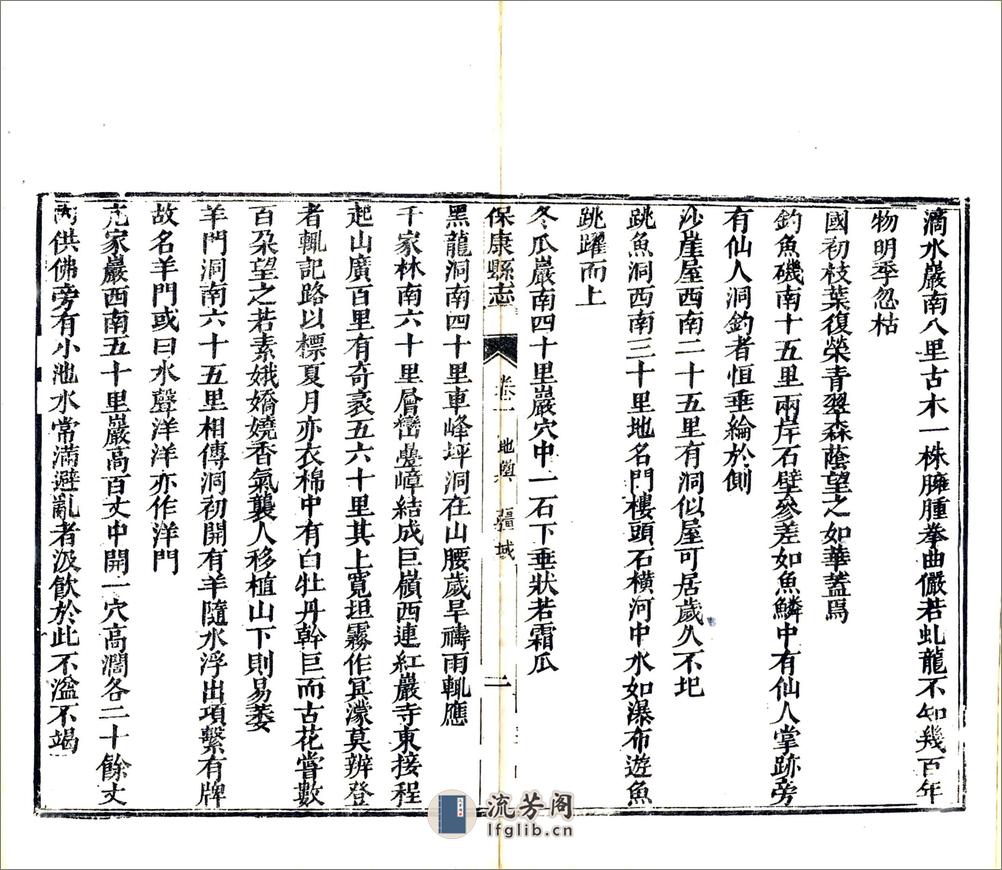 滴水巖南八里古木一株臃腫拳曲儼若虬龍不知幾百年
物明季忽枯
國初枝葉復榮青翠森蔭望之如華蓋焉
釣魚磯南十五里兩岸石壁參差如魚鱗中有仙人掌跡旁
有仙人洞釣者恒垂綸於側
沙崖屋西南二十五里有洞似屋可居歲久不圯
跳魚洞西南三十里地名門樓頭石橫河中水如瀑布遊魚
跳躍而上
冬瓜巖南四十里巖穴中一石下垂狀若霜瓜
保康縣志 卷一 地輿 疆域 二
黑龍洞南四十里車峰坪洞在山腰歲旱禱雨輒應
千家林南六十里層巒疊嶂結成巨嶺西連紅巖寺東接程
起山廣百里有奇袤五六十里其上寬坦霧作冥濛莫辨登
者輒記路以標夏月亦衣棉中有白牡丹幹巨而古花嘗數
百朵望之若素娥嬌嬈香氣襲人移植山下則易萎
羊門洞南六十五里相傳洞初開有羊隨水浮出項繫有牌
故名羊門或曰水聲洋洋亦作洋門
家巖西南五十里巖高百丈中開一穴高濶各二十餘丈
內供佛旁有小池水常滿避亂者汲飲於此不溢不竭
流芳阁
lfglib.cn